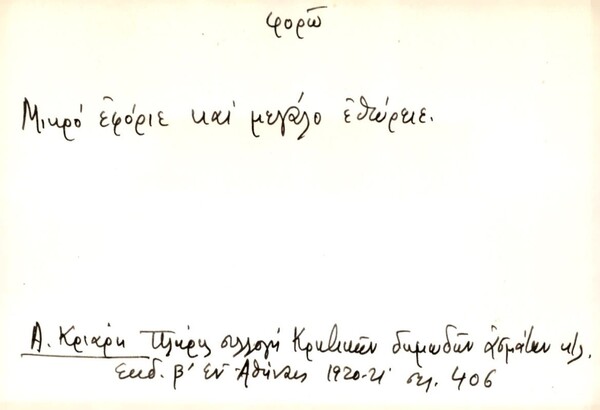 φορῶ
Μικρό ἐφόριε καί μεγάλο ἐθώρειε.
Α. Κριάρη Πλήρης συλλογή Κρητικῶν δημωδῶν ᾀσμάτων κτλ.
ἔκδ. β' ἐν Ἀθήναις 1920-21 σελ. 406